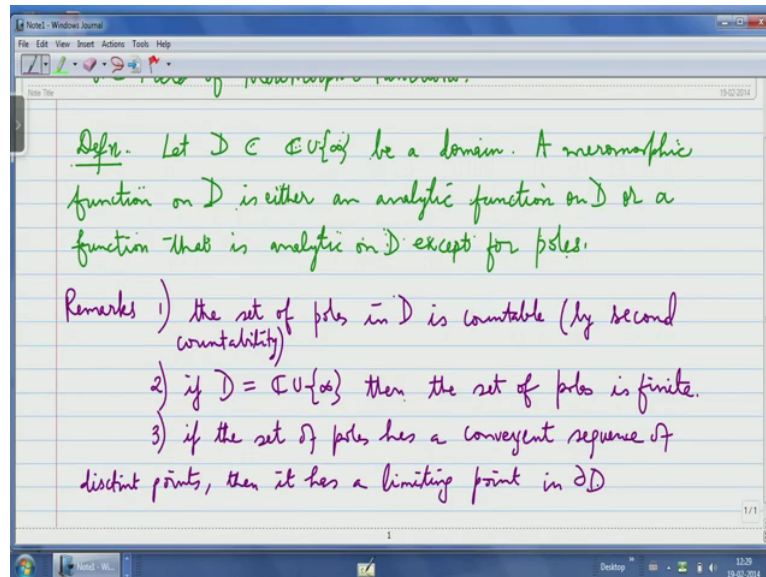 Note1 - Windows Journal
File Edit View Insert Actions Tools Help
Field of Meromorphic Functions.
Note Title
19-02-2014
Defn. Let D ⊂ ℂ∪{∞} be a domain. A meromorphic
function on D is either an analytic function on D or a
function that is analytic on D except for poles.
Remarks 1) the set of poles in D is countable (by second
countability)
2) if D = ℂ∪{∞} then the set of poles is finite.
3) if the set of poles has a convergent sequence of
disctint points, then it has a limiting point in ∂D
1/1
1
Note1 - Wi...
Desktop
12:29
19-02-2014